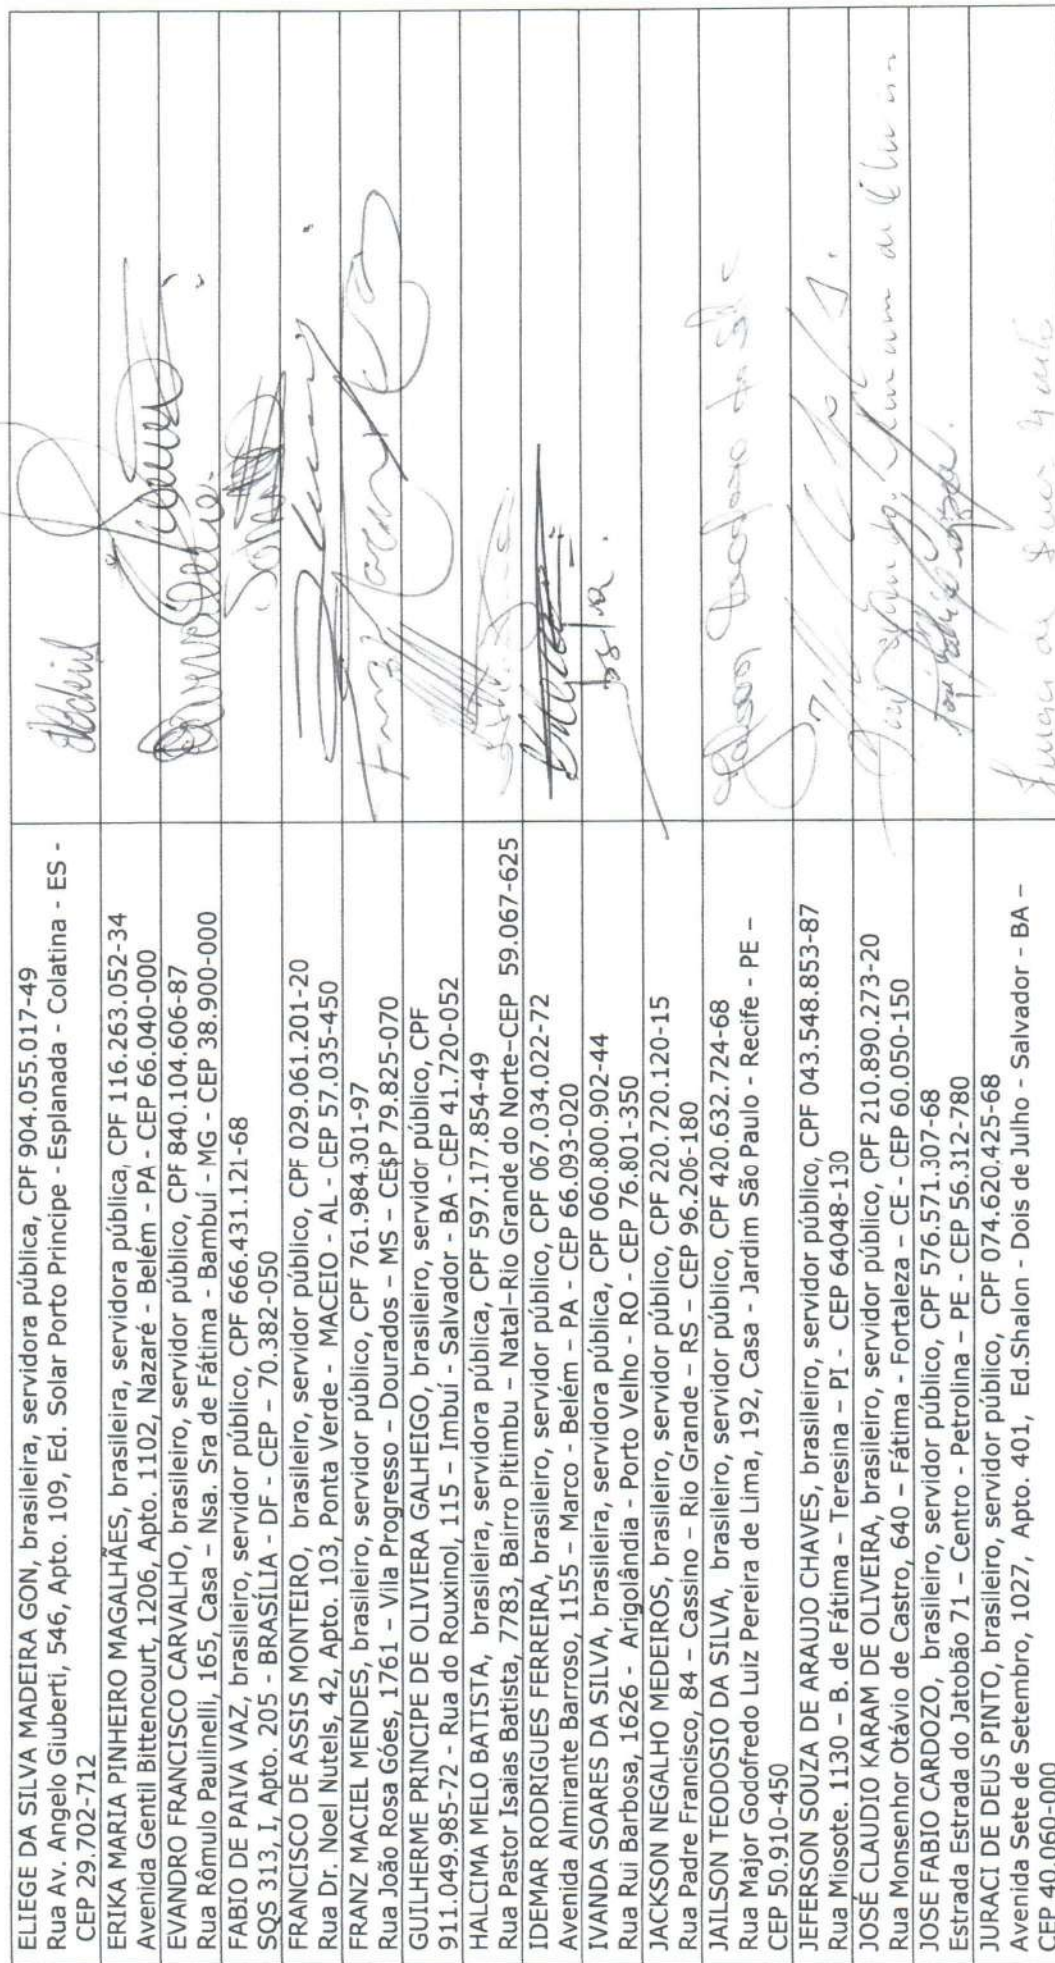 ELIEGE DA SILVA MADEIRA GON, brasileira, servidora pública, CPF 904.055.017-49
Rua Av. Angelo Giuberti, 546, Apto. 109, Ed. Solar Porto Principe - Esplanada - Colatina - ES -
CEP 29.702-712
ERIKA MARIA PINHEIRO MAGALHÃES, brasileira, servidora pública, CPF 116.263.052-34
Avenida Gentil Bittencourt, 1206, Apto. 1102, Nazaré - Belém - PA - CEP 66.040-000
EVANDRO FRANCISCO CARVALHO, brasileiro, servidor público, CPF 840.104.606-87
Rua Rômulo Paulinelli, 165, Casa – Nsa. Sra de Fátima - Bambuí - MG - CEP 38.900-000
FABIO DE PAIVA VAZ, brasileiro, servidor público, CPF 666.431.121-68
SQS 313, I, Apto. 205 - BRASÍLIA - DF - CEP – 70.382-050
FRANCISCO DE ASSIS MONTEIRO, brasileiro, servidor público, CPF 029.061.201-20
Rua Dr. Noel Nutels, 42, Apto. 103, Ponta Verde - MACEIO - AL - CEP 57.035-450
FRANZ MACIEL MENDES, brasileiro, servidor público, CPF 761.984.301-97
Rua João Rosa Góes, 1761 – Vila Progresso – Dourados – MS – CE$P 79.825-070
GUILHERME PRINCIPE DE OLIVIERA GALHEIGO, brasileiro, servidor público, CPF
911.049.985-72 - Rua do Rouxinol, 115 – Imbuí - Salvador - BA - CEP 41.720-052
HALCIMA MELO BATISTA, brasileira, servidora pública, CPF 597.177.854-49
Rua Pastor Isaias Batista, 7783, Bairro Pitimbu – Natal–Rio Grande do Norte–CEP 59.067-625
IDEMAR RODRIGUES FERREIRA, brasileiro, servidor público, CPF 067.034.022-72
Avenida Almirante Barroso, 1155 – Marco - Belém – PA - CEP 66.093-020
IVANDA SOARES DA SILVA, brasileira, servidora pública, CPF 060.800.902-44
Rua Rui Barbosa, 1626 - Arigolândia - Porto Velho - RO - CEP 76.801-350
JACKSON NEGALHO MEDEIROS, brasileiro, servidor público, CPF 220.720.120-15
Rua Padre Francisco, 84 – Cassino – Rio Grande – RS – CEP 96.206-180
JAILSON TEODOSIO DA SILVA, brasileiro, servidor público, CPF 420.632.724-68
Rua Major Godofredo Luiz Pereira de Lima, 192, Casa - Jardim São Paulo - Recife - PE –
CEP 50.910-450
JEFERSON SOUZA DE ARAUJO CHAVES, brasileiro, servidor público, CPF 043.548.853-87
Rua Miosote. 1130 – B. de Fátima – Teresina – PI - CEP 64048-130
JOSÉ CLAUDIO KARAM DE OLIVEIRA, brasileiro, servidor público, CPF 210.890.273-20
Rua Monsenhor Otávio de Castro, 640 – Fátima - Fortaleza – CE - CEP 60.050-150
JOSE FABIO CARDOZO, brasileiro, servidor público, CPF 576.571.307-68
Estrada Estrada do Jatobão 71 – Centro - Petrolina – PE - CEP 56.312-780
JURACI DE DEUS PINTO, brasileiro, servidor público, CPF 074.620.425-68
Avenida Sete de Setembro, 1027, Apto. 401, Ed.Shalon - Dois de Julho - Salvador - BA –
CEP 40.060-000